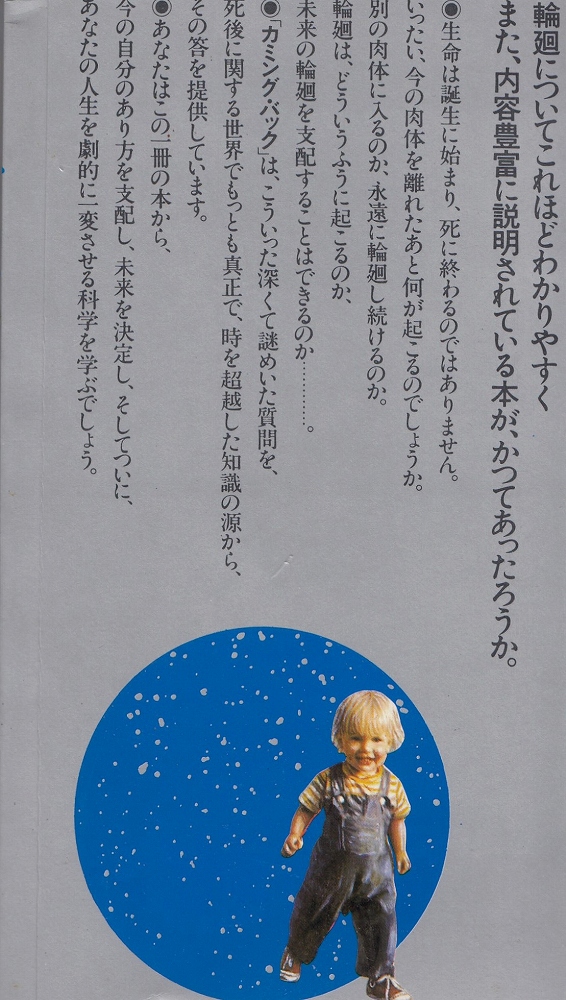 輪廻についてこれほどわかりやすく
また、内容豊富に説明されている本が、かつてあったろうか。
●生命は誕生に始まり、死に終わるのではありません。
いったい、今の肉体を離れたあと何が起こるのでしょうか。
別の肉体に入るのか、永遠に輪廻し続けるのか。
輪廻は、どういうふうに起こるのか、
未来の輪廻を支配することはできるのか…………。
●「カミング・バック」は、こういった深くて謎めいた質問を、
死後に関する世界でもっとも真正で、時を超越した知識の源から、
その答を提供しています。
●あなたはこの一冊の本から、
今の自分のあり方を支配し、未来を決定し、そしてついに、
あなたの人生を劇的に一変させる科学を学ぶでしょう。